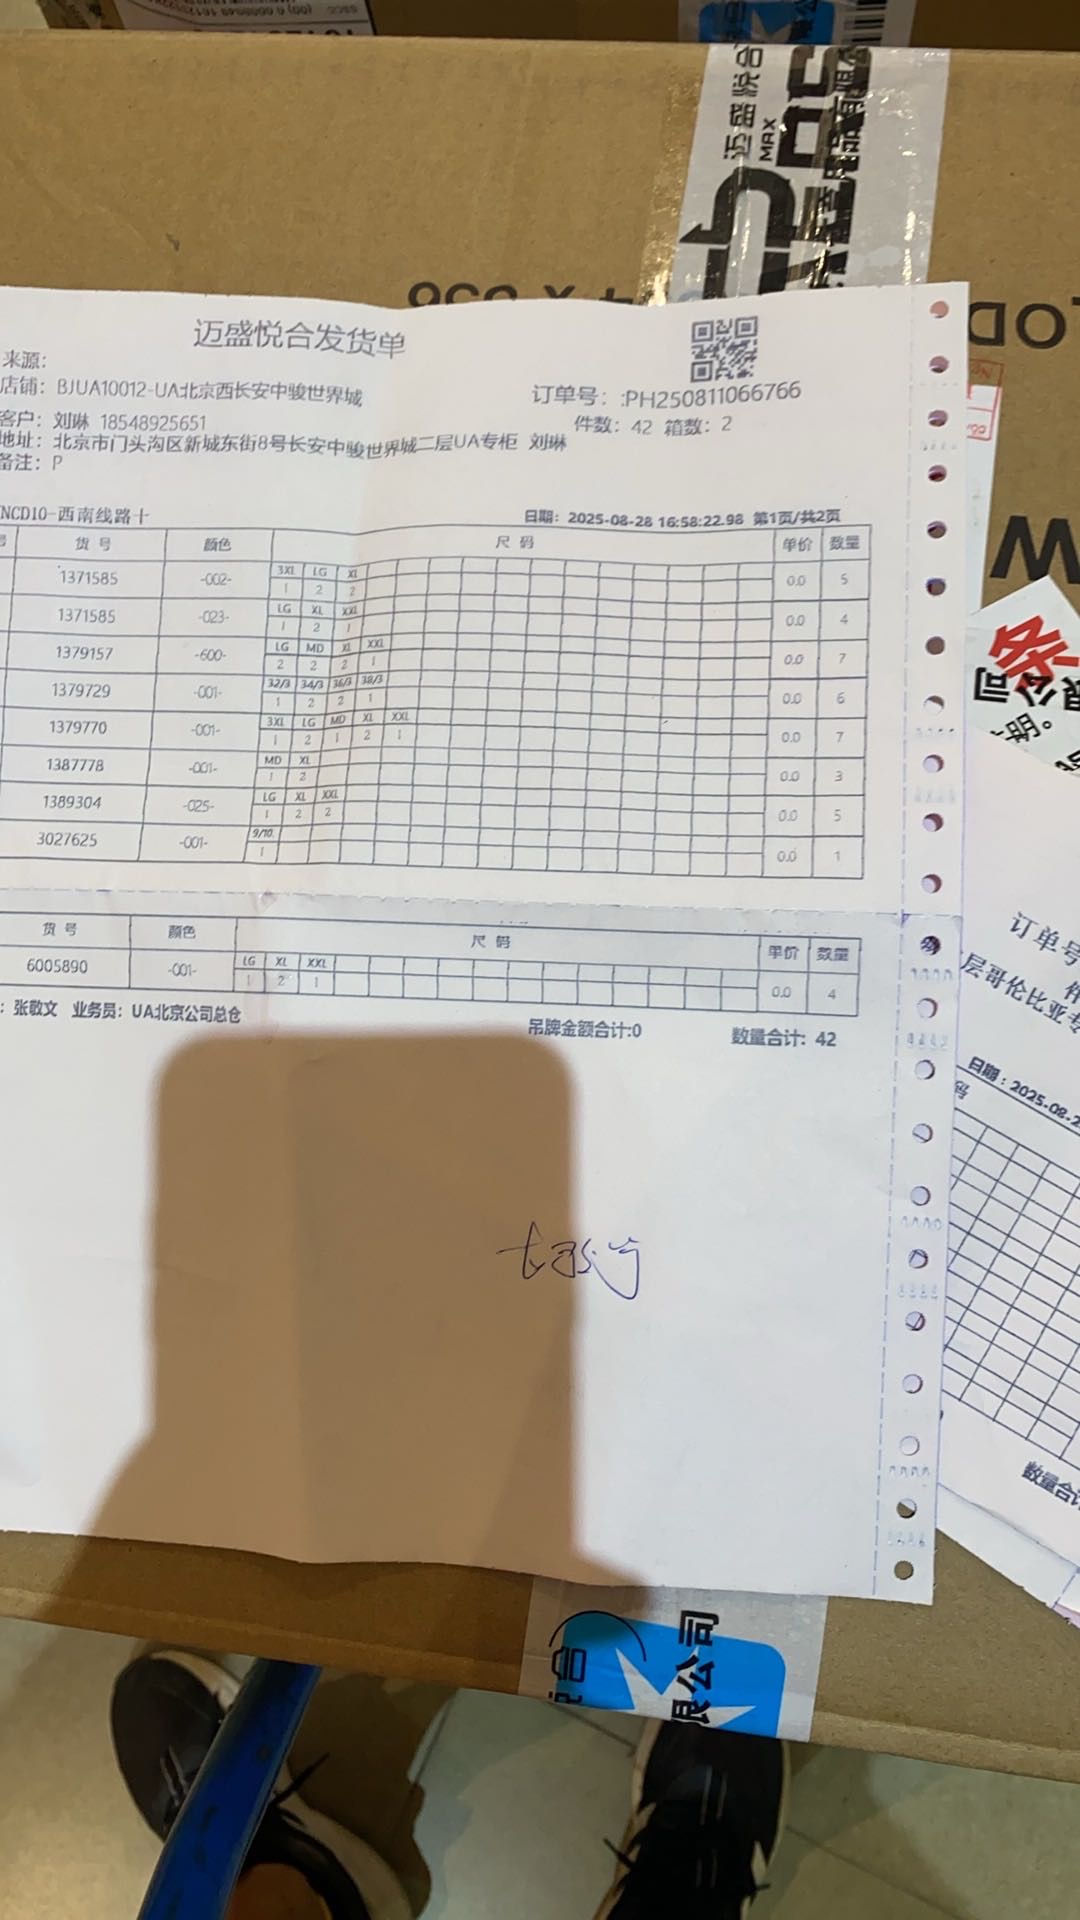 迈盛悦合
MAX
迈盛悦合发货单
来源:
店铺: BJUA10012-UA北京西长安中骏世界城
订单号: :PH250811066766
客户: 刘琳 18548925651
件数: 42 箱数: 2
地址: 北京市门头沟区新城东街8号长安中骏世界城二层UA专柜 刘琳
备注: P
NCD10-西南线路十
日期: 2025-08-28 16:58:22.98 第1页/共2页
号 货 号 颜色 尺 码 单价 数量
1371585 -002- 3XL LG XL 0.0 5
1 2 2
1371585 -023- LG XL XXL 0.0 4
1 2 1
1379157 -600- LG MD XL XXL 0.0 7
2 2 2 1
1379729 -001- 32/3 34/3 36/3 38/3 0.0 6
1 2 2 1
1379770 -001- 3XL LG MD XL XXL 0.0 7
1 2 1 2 1
1387778 -001- MD XL 0.0 3
1 2
1389304 -025- LG XL XXL 0.0 5
1 2 2
3027625 -001- 9/10 0.0 1
1
货 号 颜色 尺 码 单价 数量
6005890 -001- LG XL XXL 0.0 4
1 2 1
: 张敬文 业务员: UA北京公司总仓
吊牌金额合计:0
数量合计: 42
订单号
件
层哥伦比亚专
日期: 2025-08-2
码
数量合计
限公司